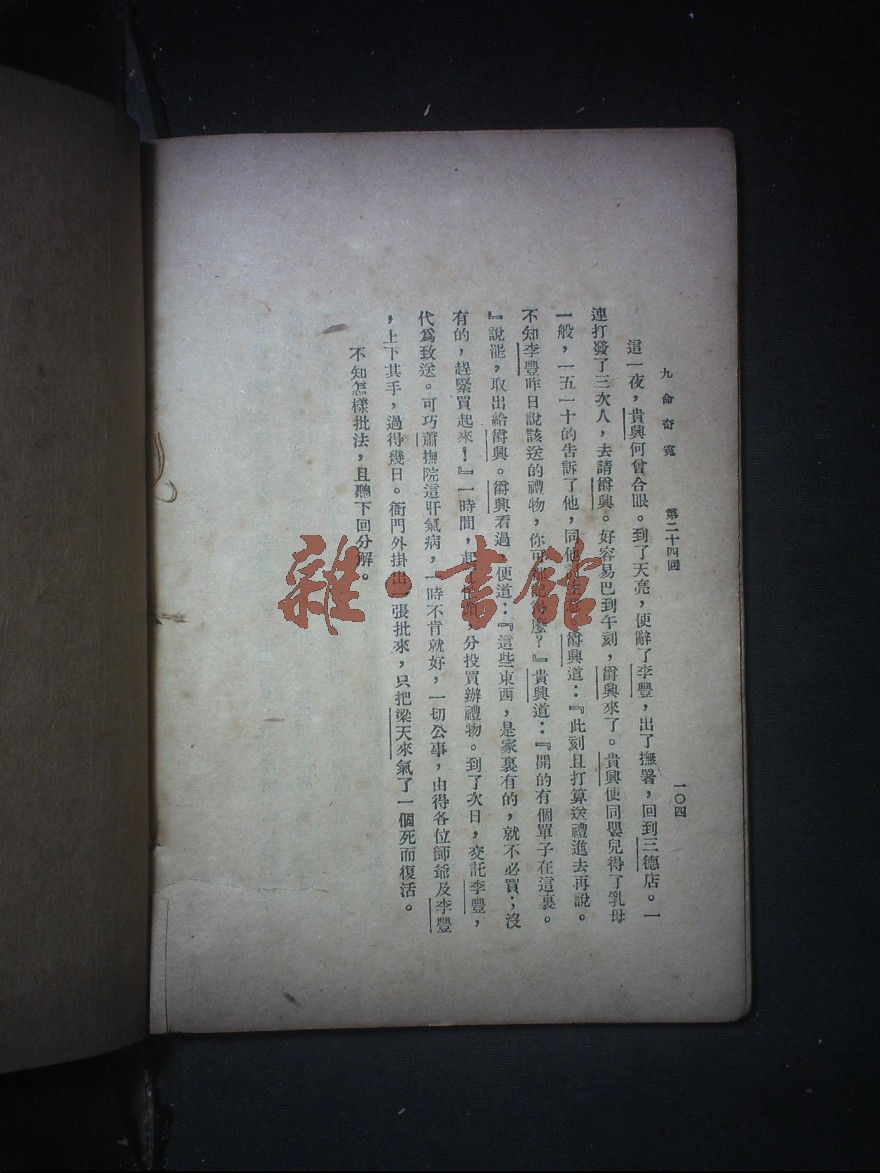 九命奇冤　第二十四回　一〇四
這一夜，貴興何曾合眼。到了天亮，便辭了李豐，出了撫署，回到三德店。一
連打發了三次人，去請爵興。好容易巴到午刻，爵興來了。貴興便同嬰兒得了乳母
一般，一五一十的告訴了他，同他爵興道：『此刻且打算送禮進去再說。
不知李豐昨日說該送的禮物，你可麼？』貴興道：『開的有個單子在這裏。
』說罷，取出給爵興。爵興看過，便道：『這些東西，是家裏有的，就不必買；沒
有的，趕緊買起來！』一時間，分投買辦禮物。到了次日，交託李豐，
代爲致送。可巧蕭撫院這肝氣病，一時不肯就好，一切公事，由得各位師爺及李豐
，上下其手，過得幾日。衙門外掛出一張批來，只把梁天來氣了一個死而復活。
不知怎樣批法，且聽下回分解。
雜·書館